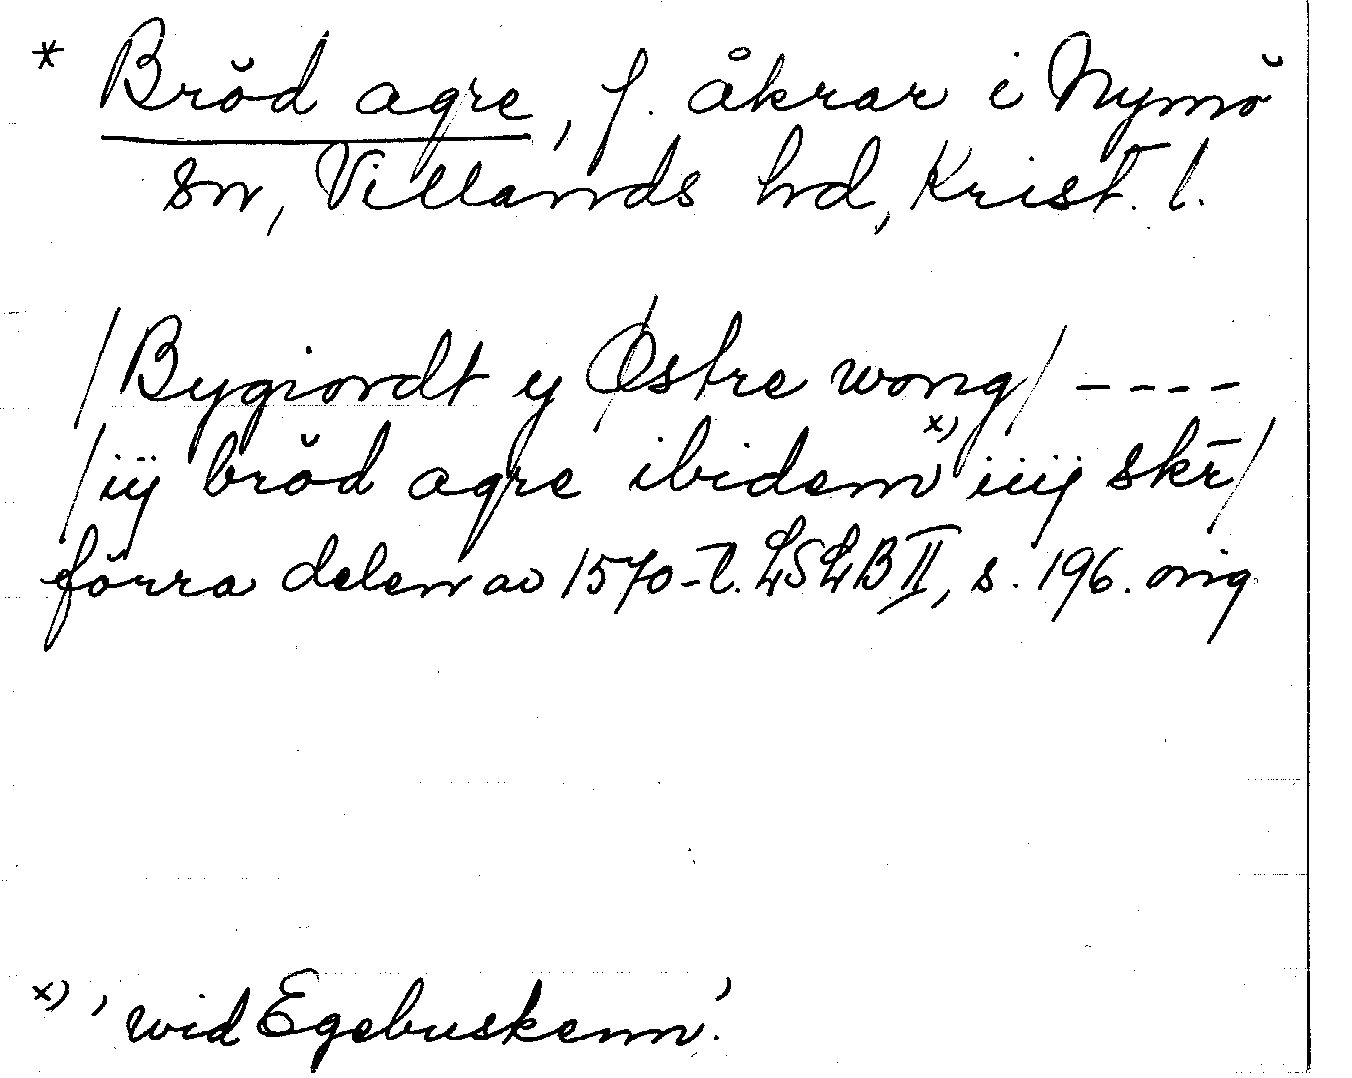 * Brŏd agre, f. åkrar i Nymŏ
sn, Villands hd, Krist. l.
/Bygiordt y Østre wong/ ----
/iij brŏd agre ibidem x) iiij skr̄/
förra delen av 1570-t. LSLB II, s. 196. orig
x) 'wid Egebuskenn'.